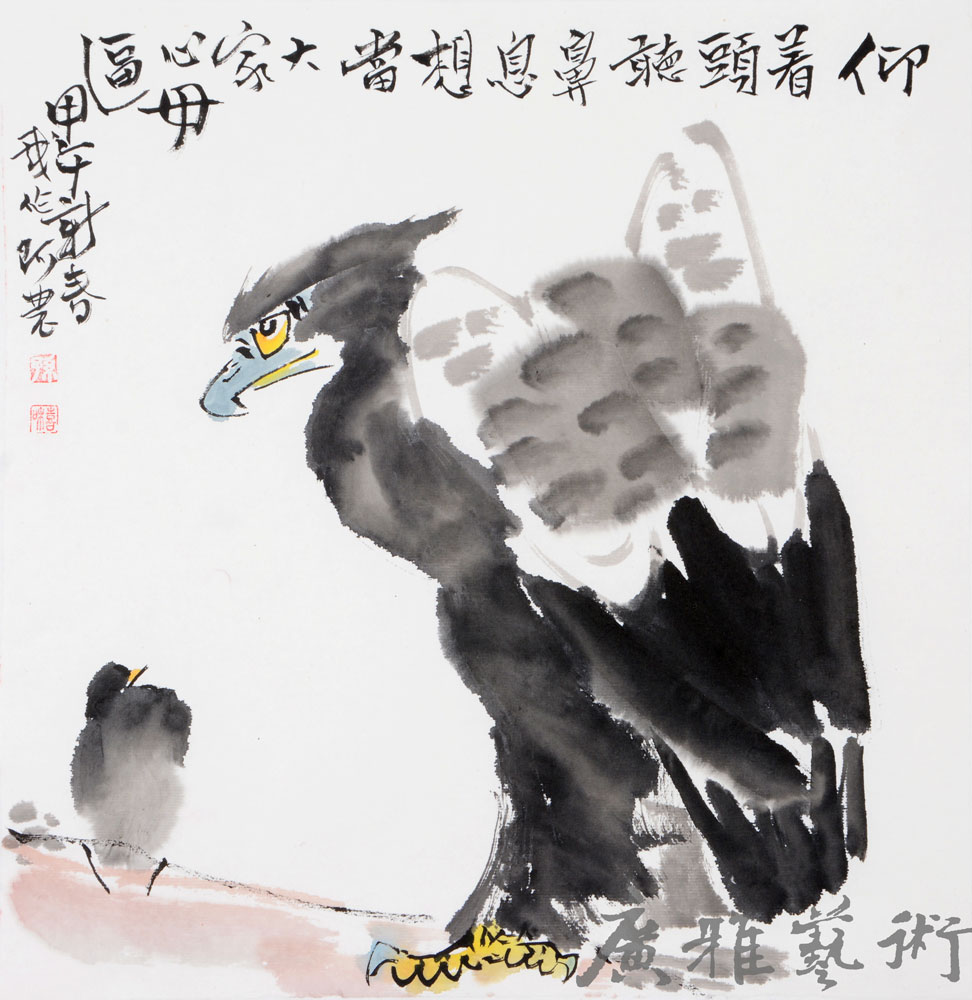 仰着頭聽鼻息想當大家心毋逼
甲午新春
作阿農
廣雅藝術